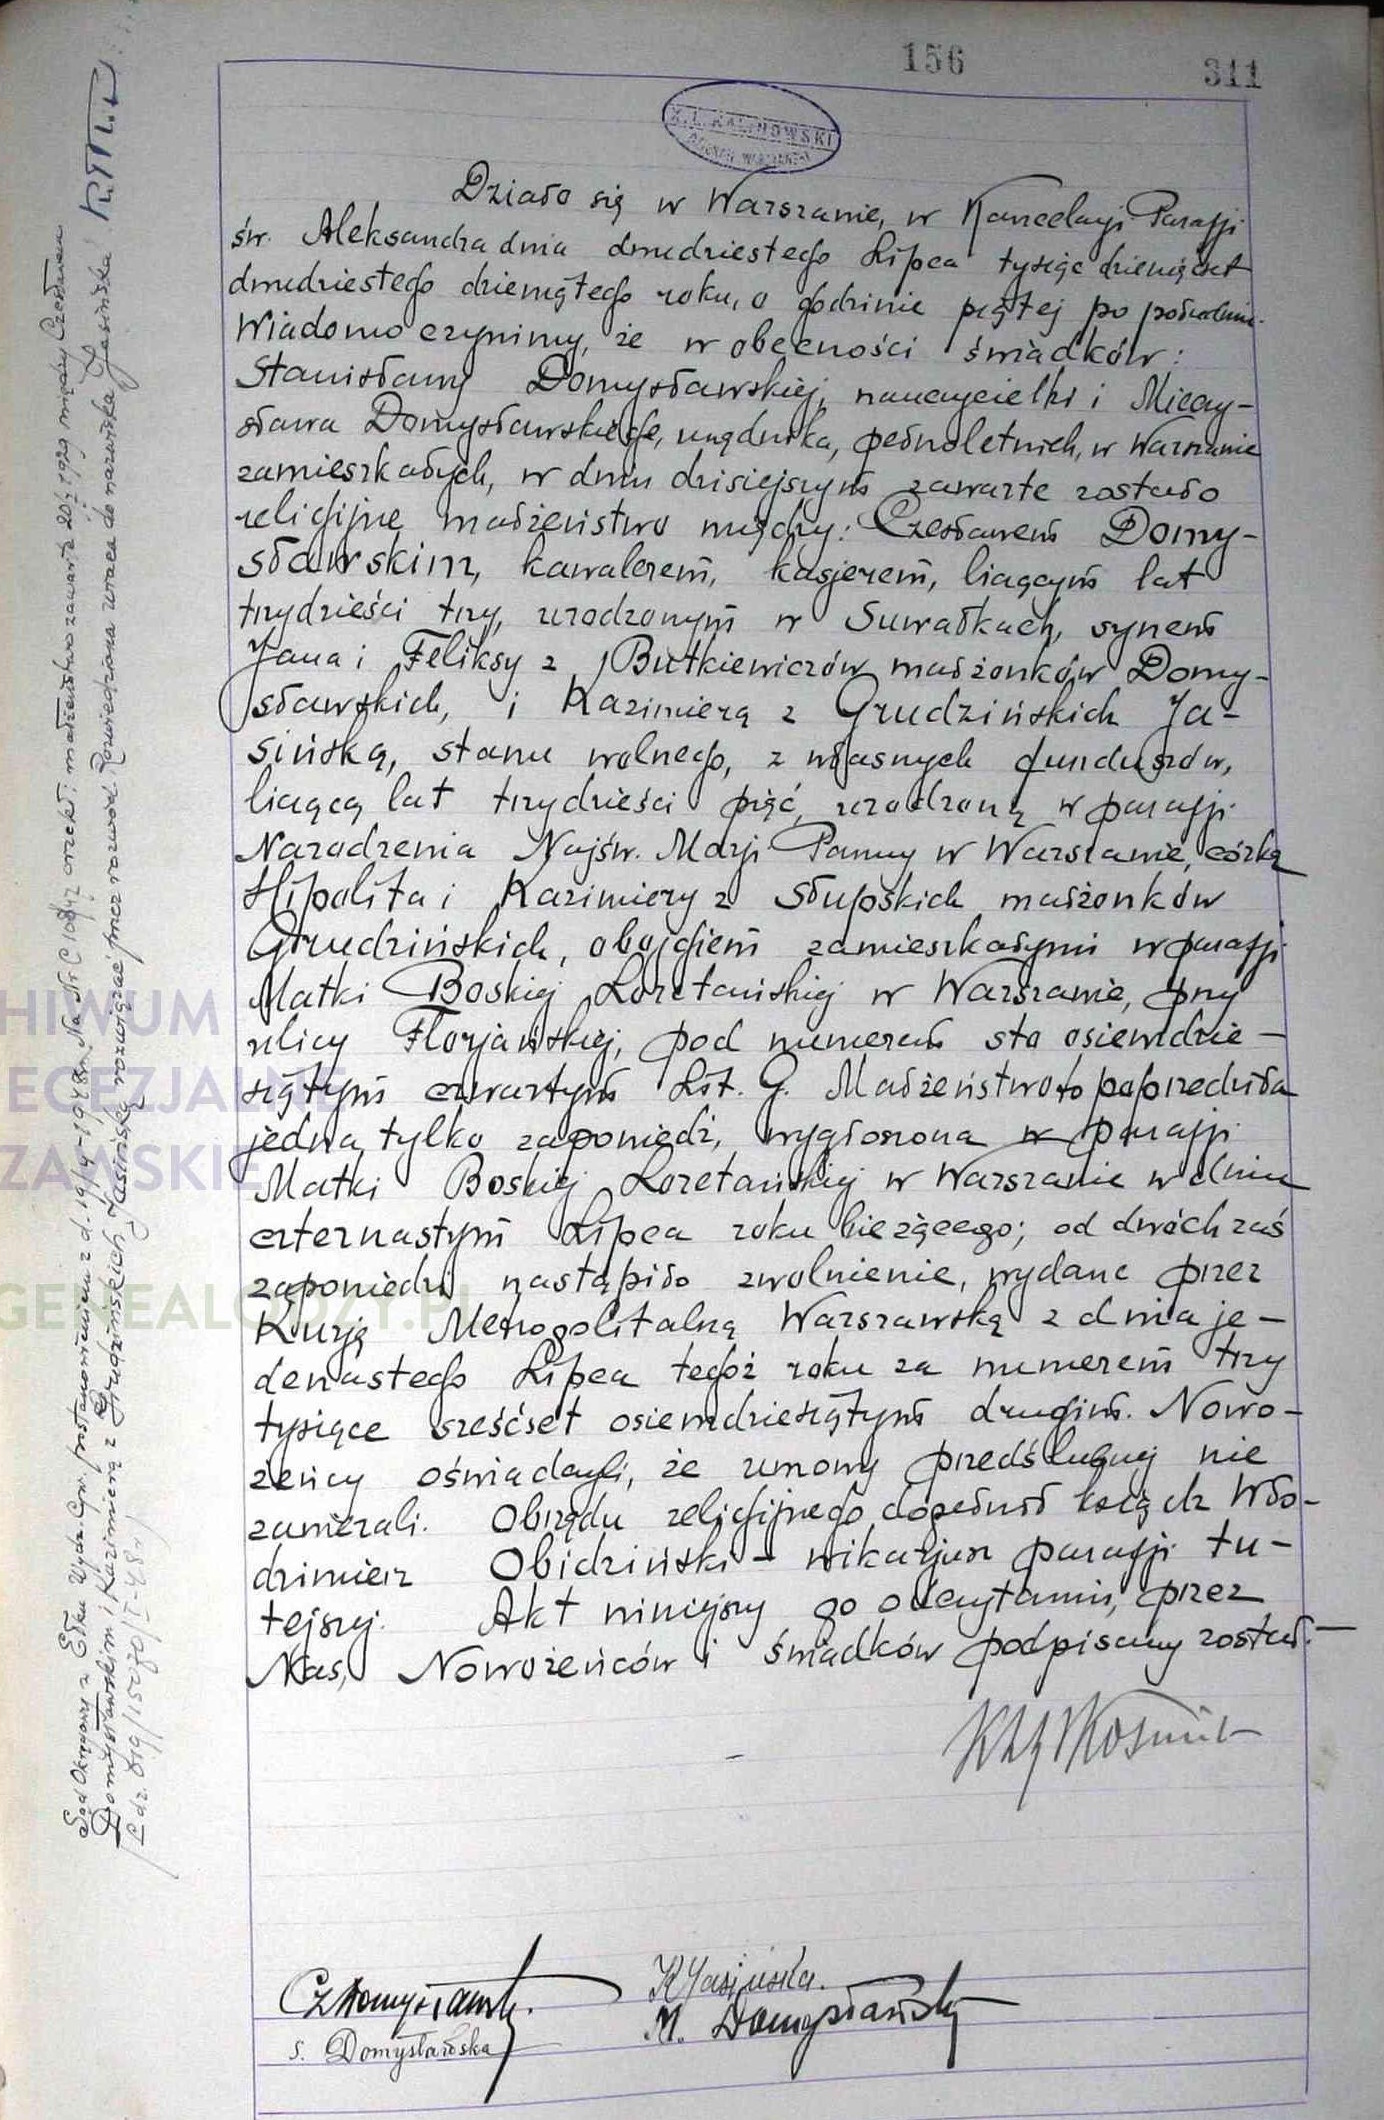 156
311
K. L. KALINOWSKI
Działo się w Warszawie, w Kancelarji Parafji
św. Aleksandra dnia dwudziestego Lipca tysiąc dziewięćset
dwudziestego dziewiątego roku, o godzinie piątej po południu.
Wiadomo czynimy, że w obecności świadków:
Stanisławy Domysławskiej, nauczycielki i Mieczy-
sława Domysławskiego, urzędnika, pełnoletnich, w Warszawie
zamieszkałych, w dniu dzisiejszym zawarte zostało
religijne małżeństwo między: Czesławem Domy-
sławskim, kawalerem, kasjerem, liczącym lat
trzydzieści trzy, urodzonym w Suwałkach, synem
Jana i Feliksy z Butkiewiczów małżonków Domy-
sławskich, i Kazimierą z Grudzińskich Ja-
sińską, stanu wolnego, z własnych funduszów,
liczącą lat trzydzieści pięć, urodzoną w parafji
Narodzenia Najśw. Marji Panny w Warszawie, córką
Hipolita i Kazimiery z Słupskich małżonków
Grudzińskich, obojgiem zamieszkałymi w parafji
Matki Boskiej Loretańskiej w Warszawie, przy
ulicy Florjańskiej, pod numerem sto osiemdzie-
siątym czwartym Lit. G. Małżeństwo to poprzedziła
jedna tylko zapowiedź, wygłoszona w parafji
Matki Boskiej Loretańskiej w Warszawie w dniu
czternastym Lipca roku bieżącego; od dwóch zaś
zapowiedzi nastąpiło zwolnienie, wydane przez
Kurję Metropolitalną Warszawską z dnia je-
denastego Lipca tegoż roku za numerem trzy
tysiące sześćset osiemdziesiątym drugim. Nowo-
żeńcy oświadczyli, że umowy przedślubnej nie
zawierali. Obrzędu religijnego dopełnił ksiądz Wło-
dzimierz Obidziński - wikarjusz parafji tu-
tejszej. Akt niniejszy po odczytaniu, przez
Nas, Nowożeńców i świadków podpisany został.
Cz Domysławski.
K Jasińska.
S. Domysławska
M. Domysławski
Sąd Okręgowy z Ełku Wydz. Cyw. postanowieniem z d. 19/IV-1948r. Na Nr C 108/47 orzekł: małżeństwo zawarte 20/7 1929 między Czesławem
Domysławskim i Kazimierą z Grudzińskich Jasińską rozwiązać przez rozwód. Rozwiedziona wraca do nazwiska "Jasińska"
HIWUM
ECEZJALNE
ZAWSKIE
GENEALODZY.PL